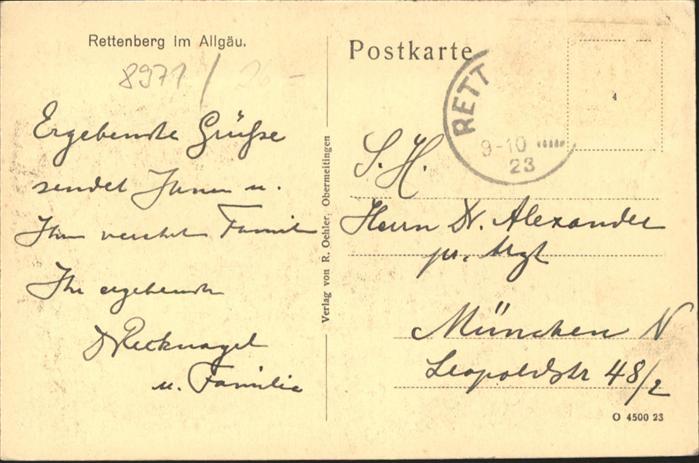 Rettenberg im Allgäu.
8971 / 26 -
Ergebenste Grüße
sendet Ihnen u.
Ihrer verehrten Familie
Ihr ergebenster
Recknagel
u. Familie
Verlag von R. Oehler, Obermeitingen
Postkarte
RETT
9-10
23
4
S. H.
Herrn Dr. Alexander
pr. Arzt
München N
Leopoldstr 48/2
O 4500 23